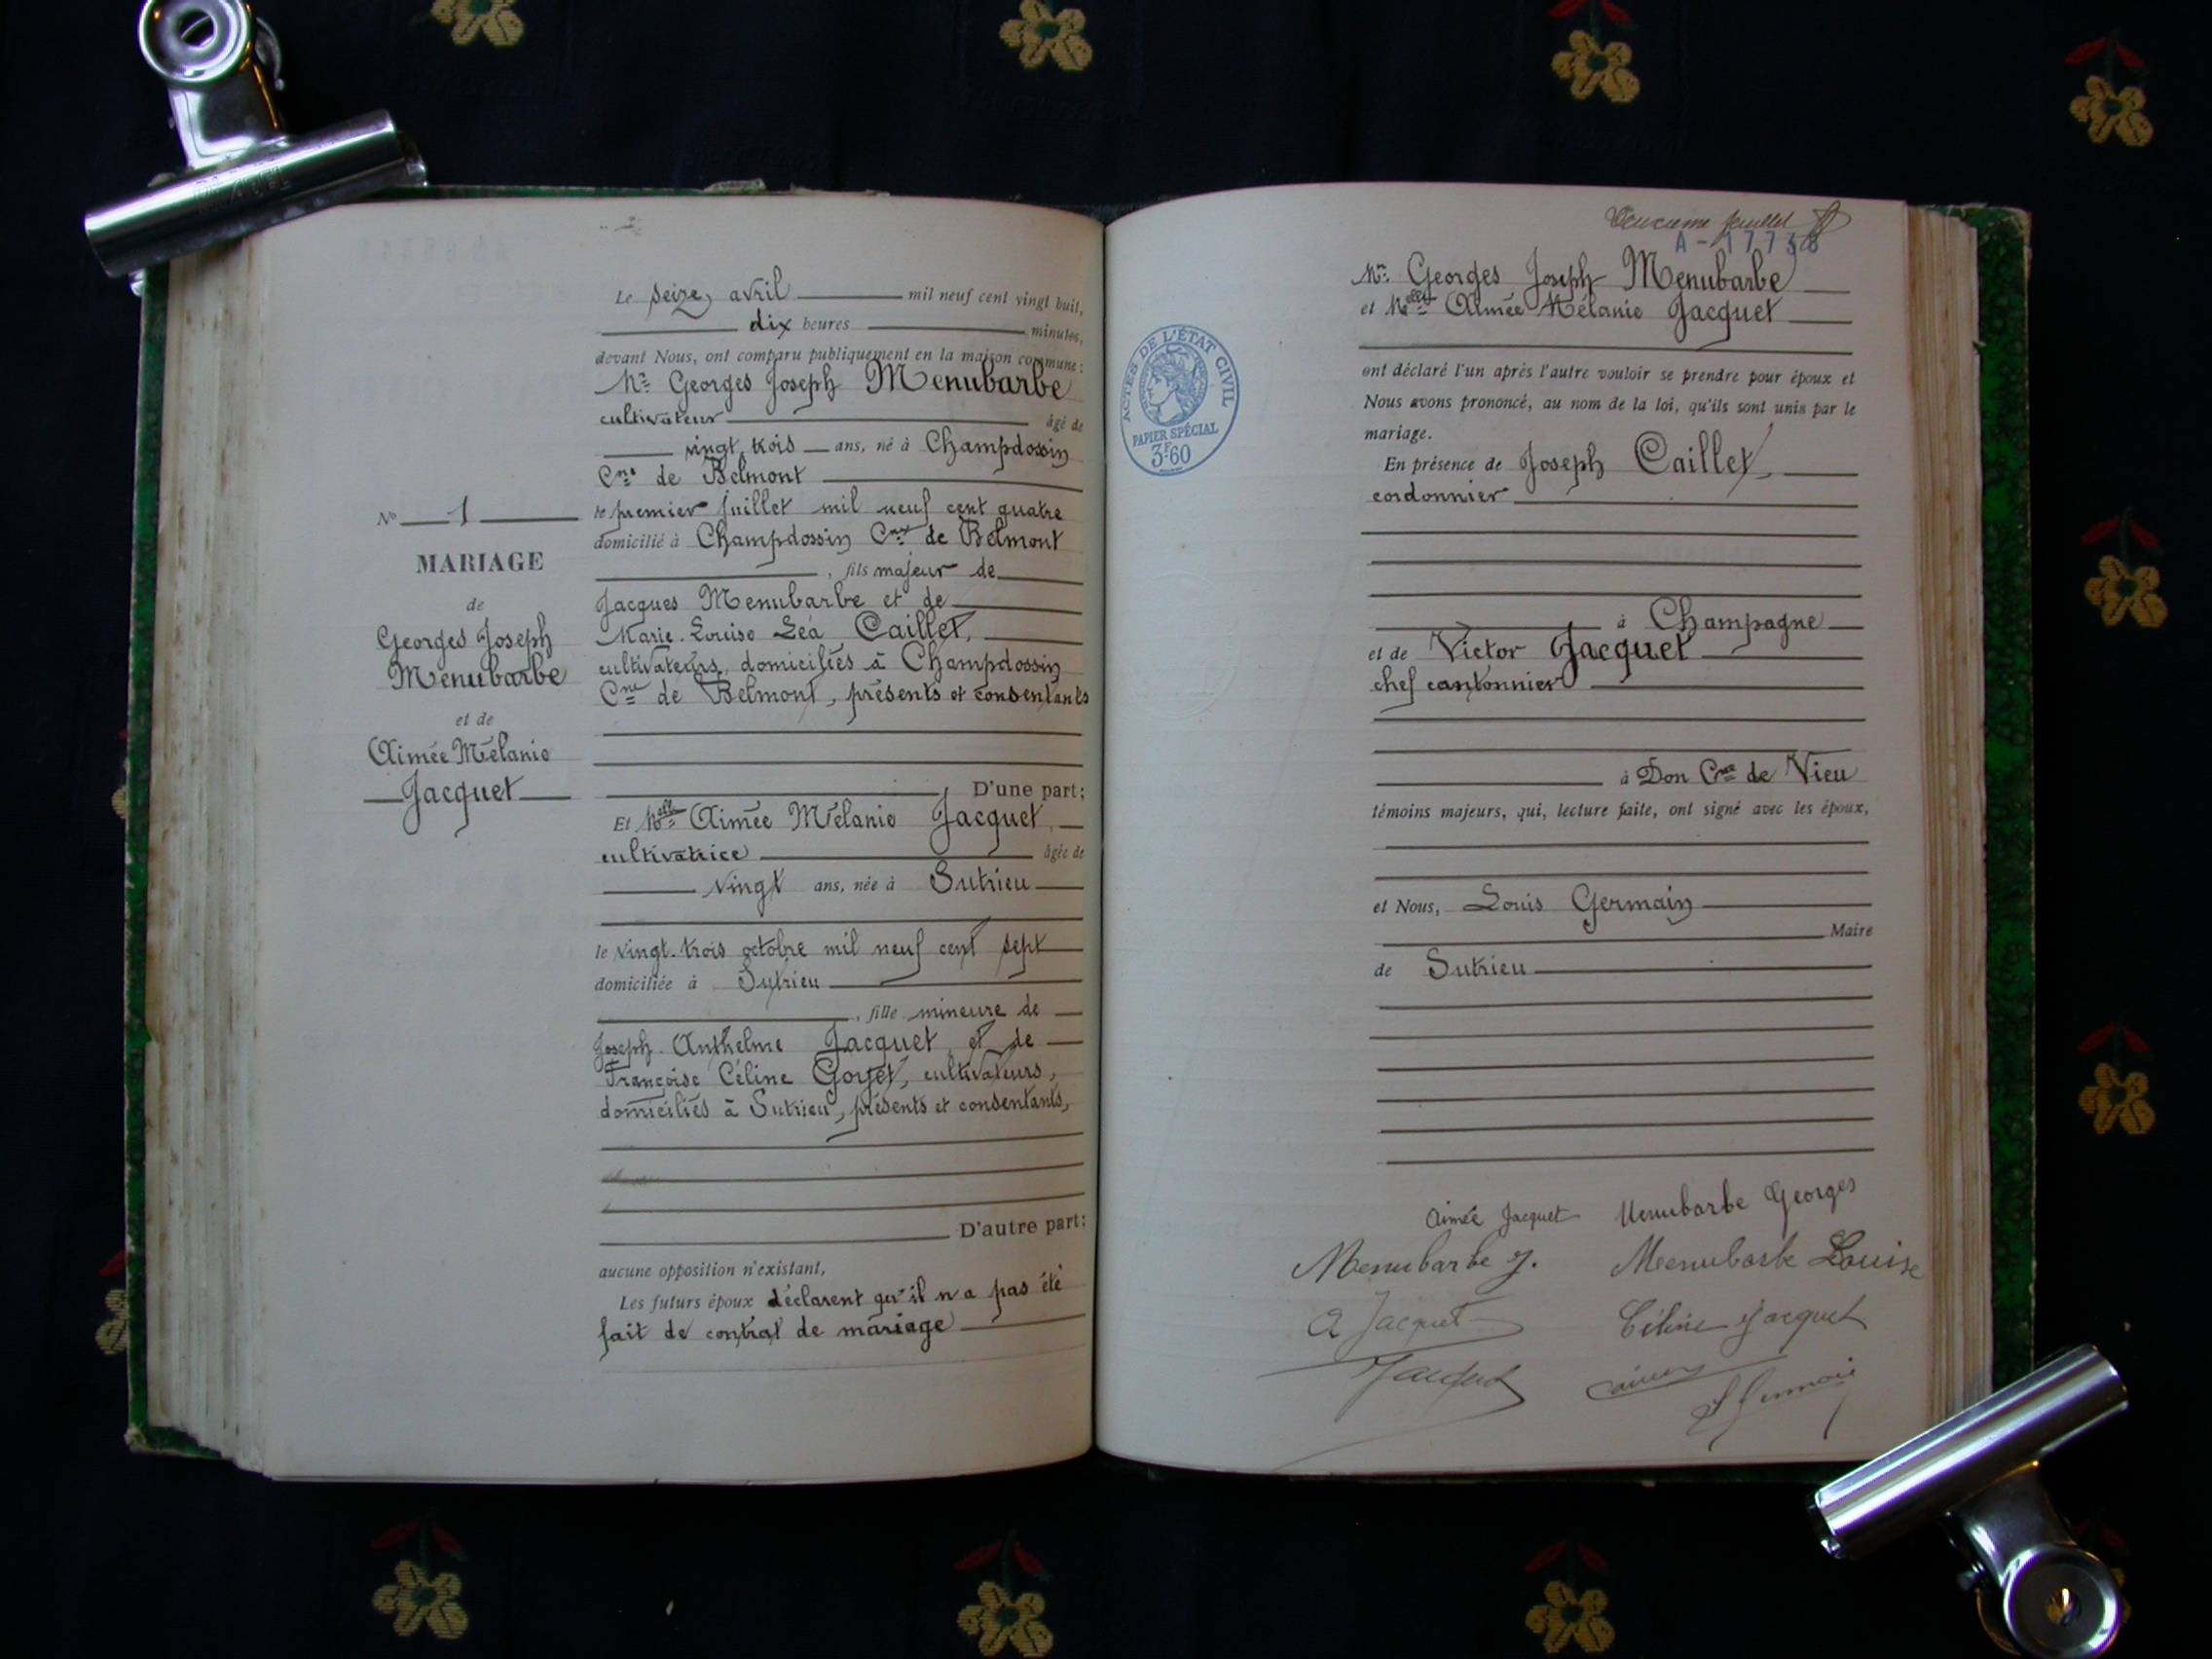 Le seize avril mil neuf cent vingt huit,
dix heures minutes,
devant Nous, ont comparu publiquement en la maison commune :
Mr Georges Joseph Menubarbe
cultivateur âgé de
vingt trois ans, né à Champdossin
Cne de Belmont
le premier juillet mil neuf cent quatre
domicilié à Champdossin Cne de Belmont
, fils majeur de
Jacques Menubarbe et de
Marie-Louise Léa Caillet,
cultivateurs, domiciliés à Champdossin
Cne de Belmont, présents et consentants
D'une part;
Et Melle Aimée Mélanie Jacquet,
cultivatrice âgée de
vingt ans, née à Sutrieu
le vingt-trois octobre mil neuf cent sept
domiciliée à Sutrieu
, fille mineure de
Joseph Anthelme Jacquet et de
Françoise Céline Goyet, cultivateurs,
domiciliés à Sutrieu, présents et consentants,
D'autre part:
aucune opposition n'existant,
Les futurs époux déclarent qu'il n'a pas été
fait de contrat de mariage
No 1
MARIAGE
de
Georges Joseph
Menubarbe
et de
Aimée Mélanie
Jacquet
feuillet
A-17738
ACTES DE L'ÉTAT CIVIL
PAPIER SPÉCIAL
3F60
Mr Georges Joseph Menubarbe
et Melle Aimée Mélanie Jacquet
ont déclaré l'un après l'autre vouloir se prendre pour époux et
Nous avons prononcé, au nom de la loi, qu'ils sont unis par le
mariage.
En présence de Joseph Caillet,
cordonnier
à Champagne
et de Victor Jacquet
chef cantonnier
à Don Cne de Vieu
témoins majeurs, qui, lecture faite, ont signé avec les époux,
et Nous, Louis Germain
Maire
de Sutrieu
Aimée Jacquet Menubarbe Georges
Menubarbe J. Menubarbe Louise
A Jacquet Céline Jacquet
Jacquet